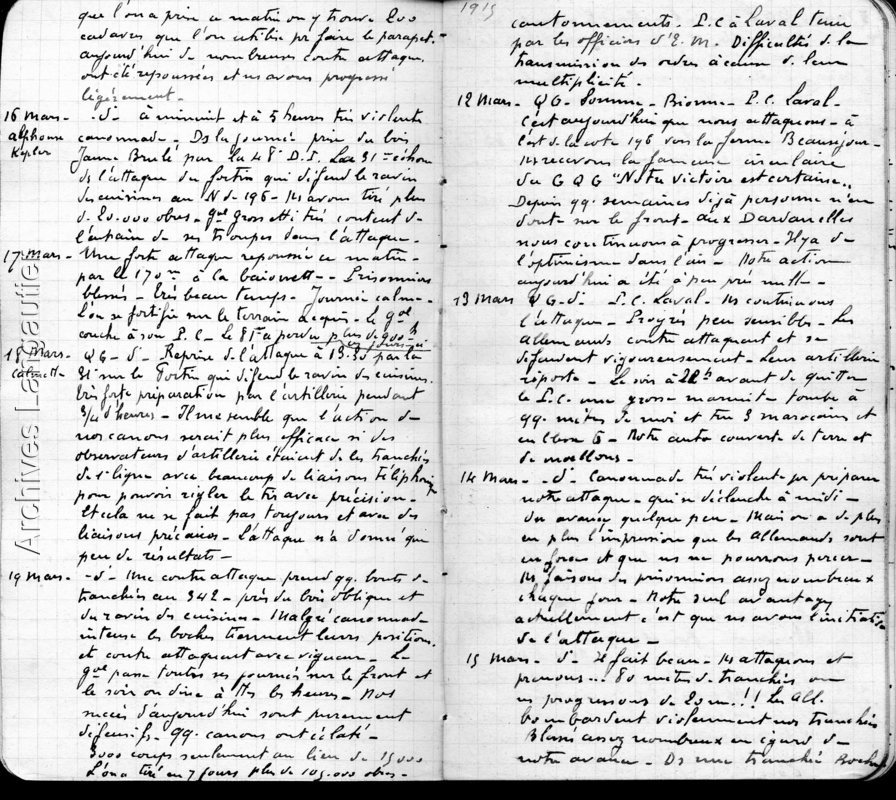 que l'on a prise ce matin on y trouve 200
cadavres que l'on utilise pr faire le parapet.
aujourd'hui de nombreuses contre attaques
ont été repoussées et ns avons progressé
légèrement -
16 Mars - -d- à minuit et à 5 heures très violente
Alphonse canonnade - Ds la journée prise du bois
Kepler Jaune Brulé par la 48e D.I. La 31e échoue
ds l'attaque du fortin qui défend le ravin
des cuisines au N de 196 - Ns avons tiré plus
de 20.000 obus - gal très content de
l'entrain de ses troupes dans l'attaque -
17 Mars - Une forte attaque repoussée ce matin -
par le 170me à la baïonnette - Prisonniers
blessés - Très beau temps - Journée calme -
L'on se fortifie sur le terrain acquis - Le gal
couche à son P.C - Le 81e a perdu plus de 900 h
18 Mars - QG - d - Reprise de l'attaque à 15.30 par la
Calmette - 31 sur le Fortin qui défend le ravin des cuisines.
très forte préparation par l'artillerie pendant
3/4 d'heures - Il me semble que l'action de
nos canons serait plus efficace si des
observateurs d'artillerie étaient ds les tranchées
de 1e ligne avec beaucoup de liaisons téléphoniq
pour pouvoir régler le tir avec précision -
Et cela ne se fait pas toujours et avec des
liaisons précaires - L'attaque n'a donné que
peu de résultats -
19 Mars - -d- Une contre attaque prend qq. bouts de
tranchées au 342 - près du bois oblique et
du ravin des cuisines - Malgré canonnade
intense les boches tiennent leurs positions.
et contre attaquent avec vigueur - Le
gal passe toutes ses journées sur le front et
le soir on dine à ttes les heures - Nos
succès d'aujourd'hui sont purement
défensifs - qq. canons ont éclaté -
3000 coups seulement au lieu de 15000
L'on a tiré en 7 jours plus de 105.000 obus -
1915
cantonnements. P.C à Laval tenu
par les officiers d'E.M. Difficultés de la
transmission des ordres à cause de leur
multiplicité.
12 Mars - QG - Somme - Bionne - P.C. Laval -
C'est aujourd'hui que nous attaquons - à
l'est de la cote 196 vers la ferme Beauséjour -
Ns recevons la fameuse circulaire
du GQG "Notre victoire est certaine"
Depuis qq. semaines déjà personne n'en
doute sur le front - aux Dardanelles
nous continuons à progresser - Il y a de
l'optimisme dans l'air - Notre action
aujourd'hui a été à peu près nulle -
13 Mars QG - d - P.C. Laval - Ns continuons
l'attaque - Progrès peu sensibles - Les
Allemands contre attaquent et se
défendent vigoureusement - Leur artillerie
riposte - Le soir à 22h avant de quitter
le P.C. une grosse marmite tombe à
qq. mètres de moi et tue 3 marocains et
en blesse 6 - Notre auto couverte de terre et
de moellons -
14 Mars - -d- Canonnade très violente pr préparer
notre attaque - qui se déclenche à midi -
On avance quelque peu - Mais on a de plus
en plus l'impression que les Allemands sont
en forces et que ns ne pourrons percer -
Ns faisons des prisonniers assez nombreux
chaque jour - Notre seul avantage
actuellement c'est que ns avons l'initiative
de l'attaque -
15 Mars - d - Il fait beau - Ns attaquons et
prenons... 80 mètres de tranchées
ns progressons de 20 m..!! Les All.
bombardent violemment nos tranchées
Blessés assez nombreux en égard de
notre avance - Ds une tranchée Boche
Archives Langautier